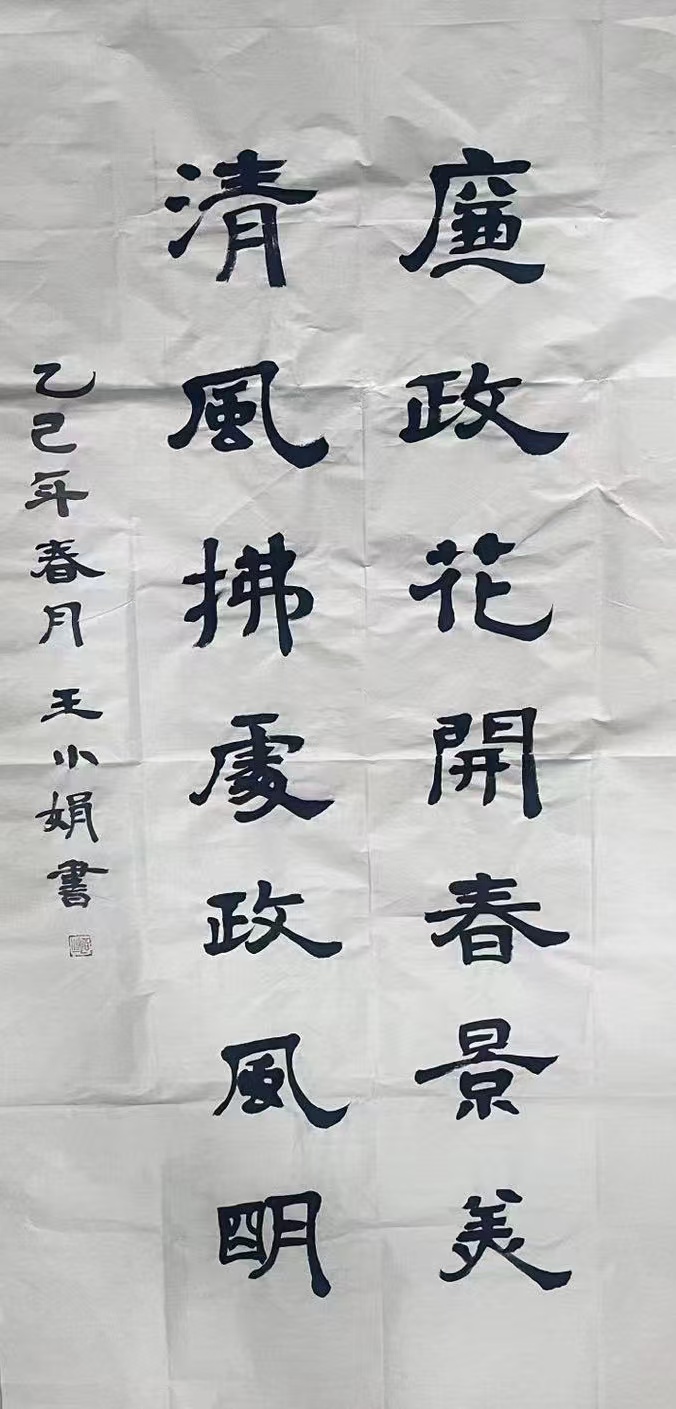 廉政花開春景美
清風拂處政風明
乙巳年春月 王小娟書